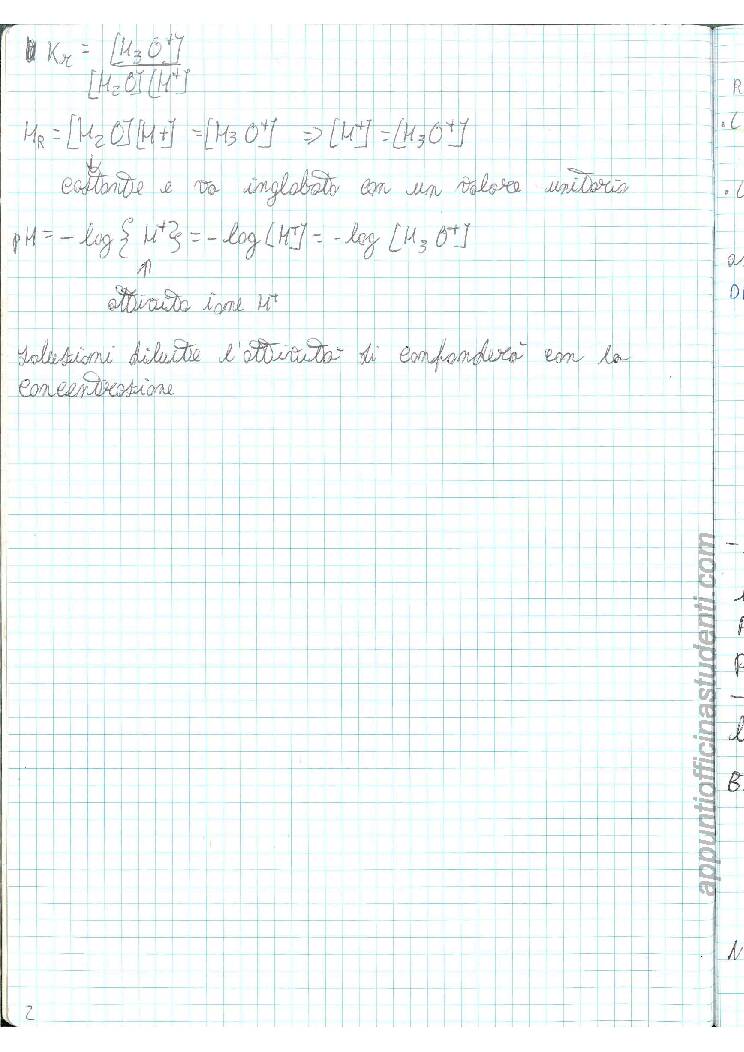 Kr = [H3O+]
[H2O][H+]
HR = [H2O][H+] = [H3O+] => [H+] = [H3O+]
costante e va inglobata con un valore unitario
pH = -log{H+} = -log[H+] = -log [H3O+]
↑
attività ione H+
soluzioni diluite l'attività si confonderà con la
concentrazione
appuntiofficinastudenti.com
2